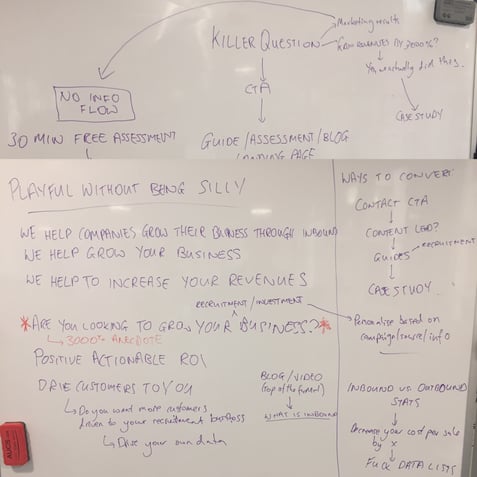 KILLER QUESTION
Marketing results
GROW REVENUES BY 3000%?
Yes, we actually did this.
CASE STUDY
CTA
NO INFO
FLOW
30 MIN FREE ASSESSMENT
GUIDE/ASSESSMENT/BLOG
LANDING PAGE
PLAYFUL WITHOUT BEING SILLY
WE HELP COMPANIES GROW THEIR BUSINESS THROUGH INBOUND
WE HELP GROW YOUR BUSINESS
WE HELP TO INCREASE YOUR REVENUES
RECRUITMENT/INVESTMENT
*ARE YOU LOOKING TO GROW YOUR BUSINESS?*
3000% ANECDOTE
POSITIVE ACTIONABLE ROI
DRIVE CUSTOMERS TO YOU
Do you want more customers
driven to your recruitment business
Drive your own data
BLOG/VIDEO
(top of the funnel)
WHAT IS INBOUND
WAYS TO CONVERT:
CONTACT CTA
CONTENT LEAD?
GUIDES
RECRUITMENT
CASE STUDY
Personalise based on
campaign/source/info
INBOUND VS. OUTBOUND
STATS
Decrease your cost per sale
by x
FUCK DATA LISTS